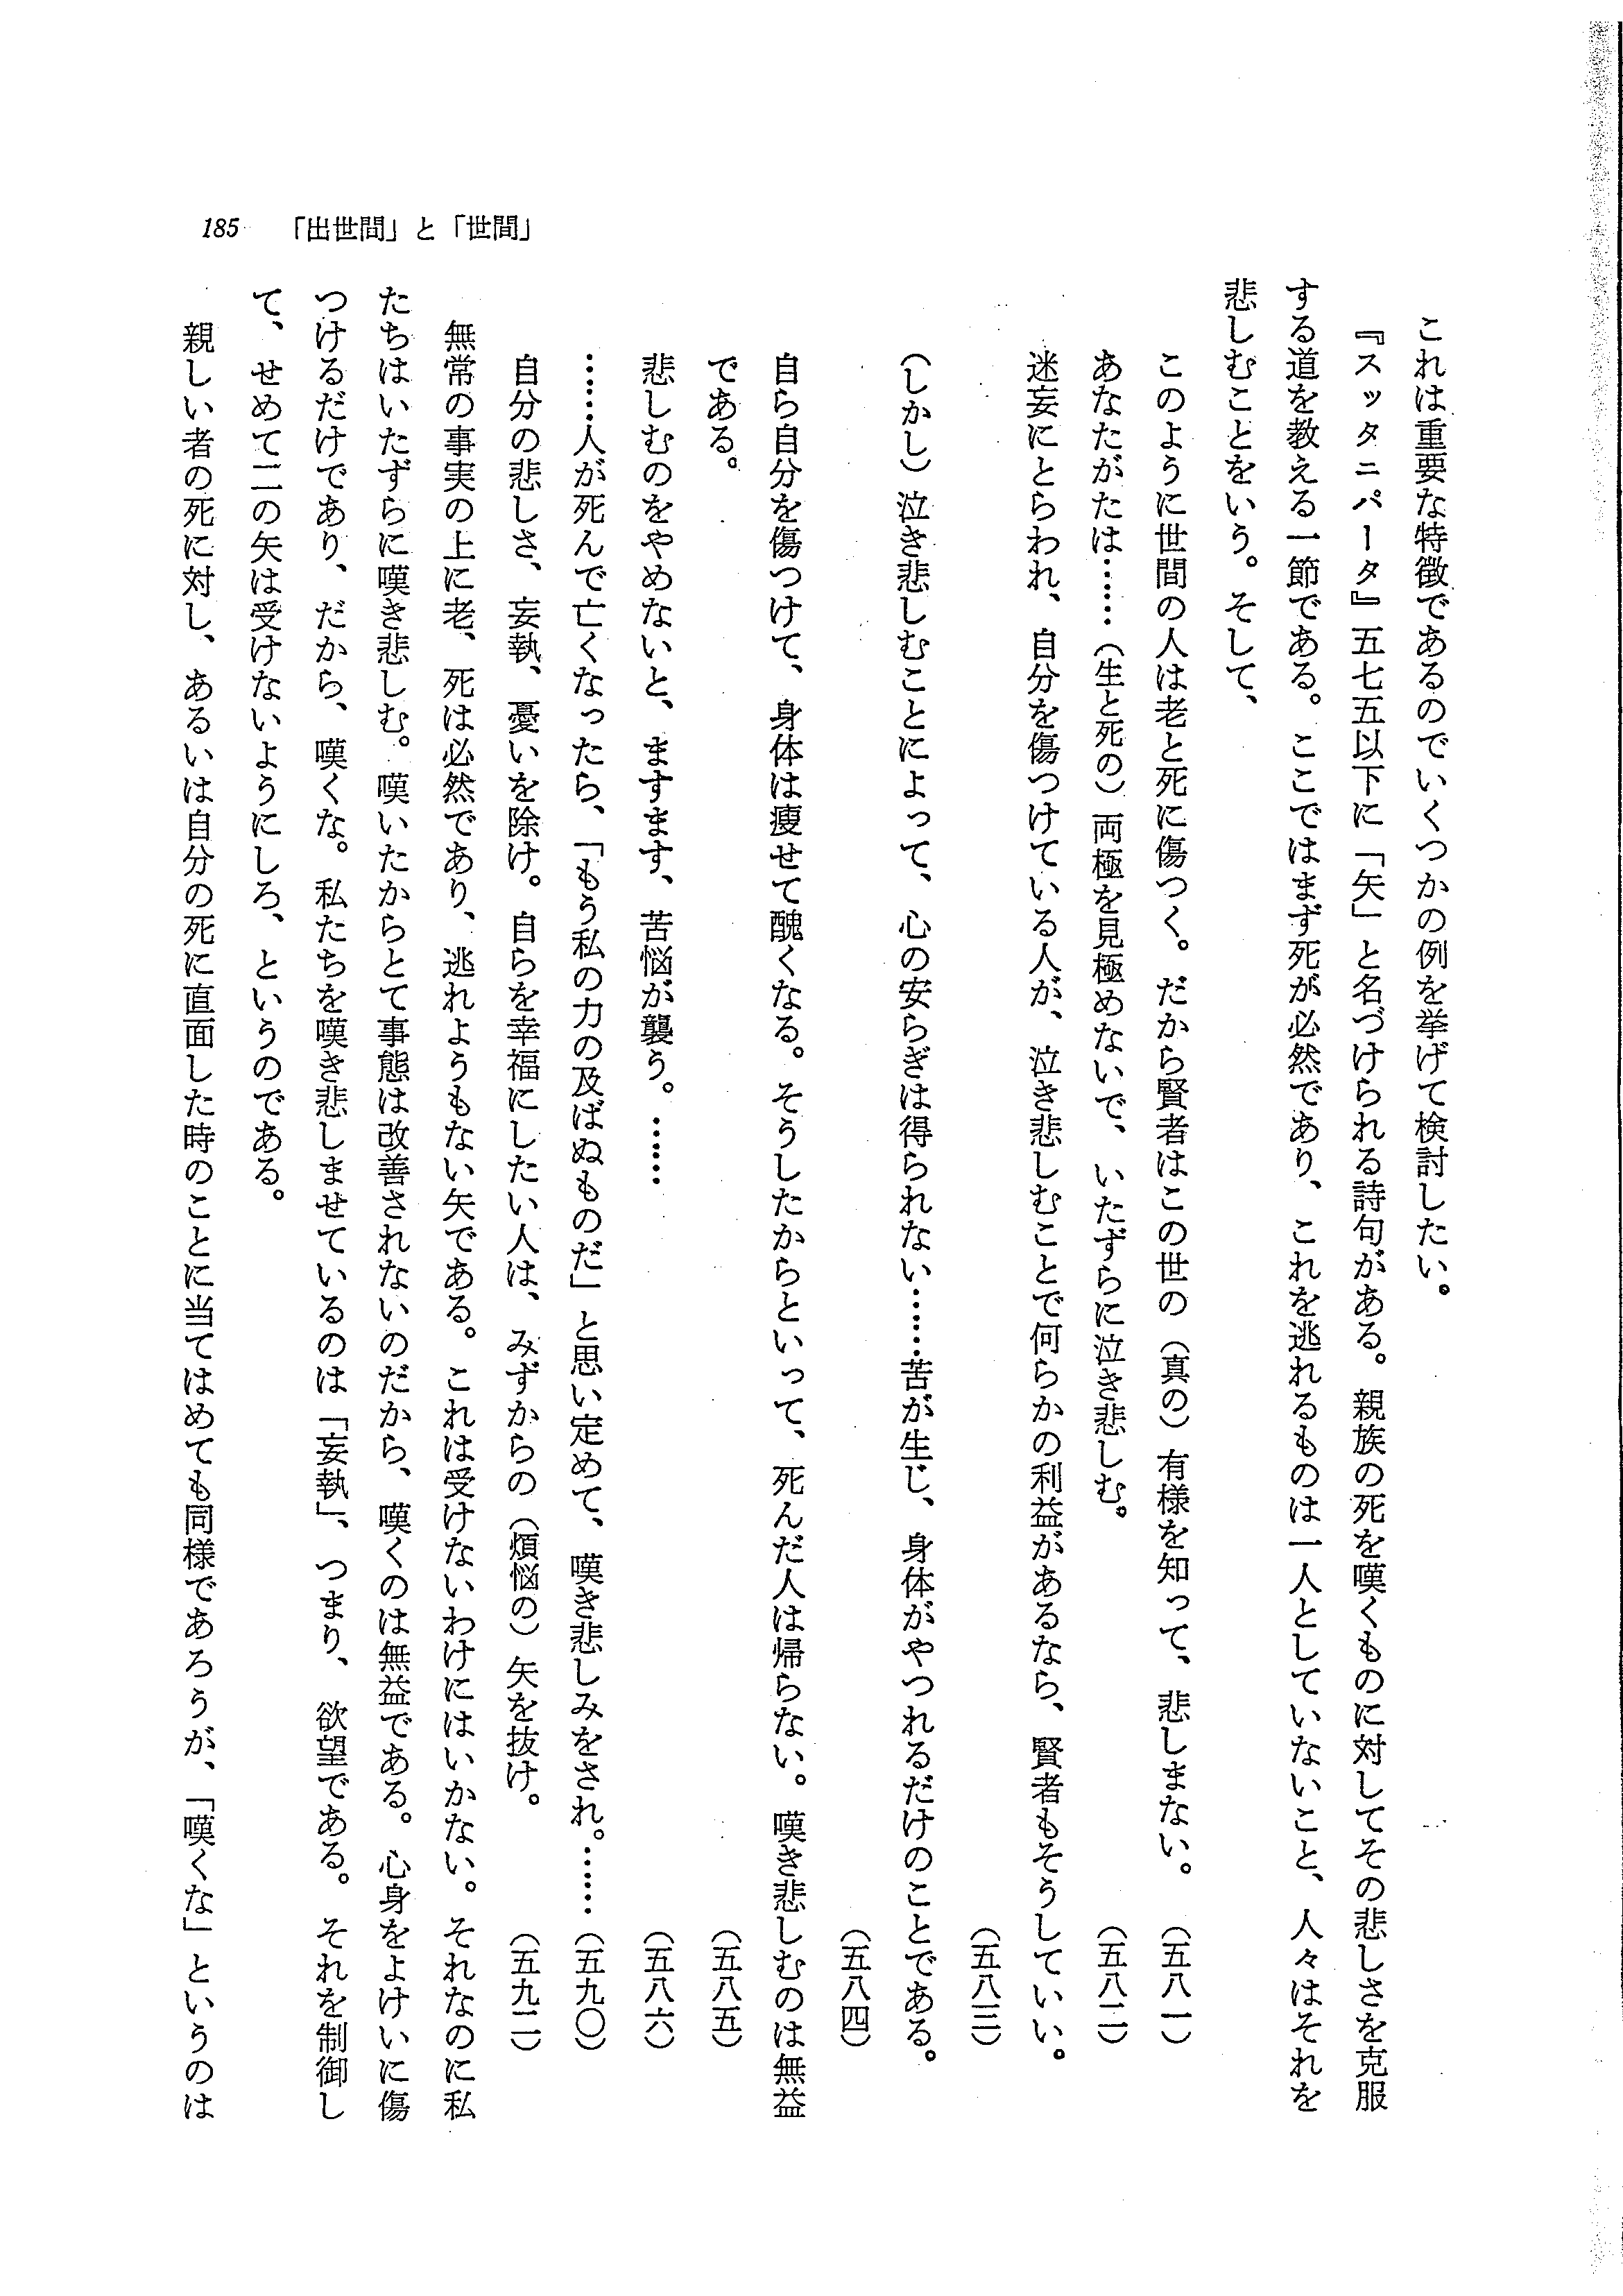 185 「出世間」と「世間」
これは重要な特徴であるのでいくつかの例を挙げて検討したい。
『スッタニパータ』五七五以下に「矢」と名づけられる詩句がある。親族の死を嘆くものに対してその悲しさを克服
する道を教える一節である。ここではまず死が必然であり、これを逃れるものは一人としていないこと、人々はそれを
悲しむことをいう。そして、
このように世間の人は老と死に傷つく。だから賢者はこの世の（真の）有様を知って、悲しまない。（五八一）
あなたがたは……（生と死の）両極を見極めないで、いたずらに泣き悲しむ。（五八二）
迷妄にとらわれ、自分を傷つけている人が、泣き悲しむことで何らかの利益があるなら、賢者もそうしていい。
（五八三）
（しかし）泣き悲しむことによって、心の安らぎは得られない……苦が生じ、身体がやつれるだけのことである。
（五八四）
自ら自分を傷つけて、身体は痩せて醜くなる。そうしたからといって、死んだ人は帰らない。嘆き悲しむのは無益
である。（五八五）
悲しむのをやめないと、ますます、苦悩が襲う。……（五八六）
……人が死んで亡くなったら、「もう私の力の及ばぬものだ」と思い定めて、嘆き悲しみをされ。……（五九〇）
自分の悲しさ、妄執、憂いを除け。自らを幸福にしたい人は、みずからの（煩悩の）矢を抜け。（五九二）
無常の事実の上に老、死は必然であり、逃れようもない矢である。これは受けないわけにはいかない。それなのに私
たちはいたずらに嘆き悲しむ。嘆いたからとて事態は改善されないのだから、嘆くのは無益である。心身をよけいに傷
つけるだけであり、だから、嘆くな。私たちを嘆き悲しませているのは「妄執」、つまり、欲望である。それを制御し
て、せめて二の矢は受けないようにしろ、というのである。
親しい者の死に対し、あるいは自分の死に直面した時のことに当てはめても同様であろうが、「嘆くな」というのは